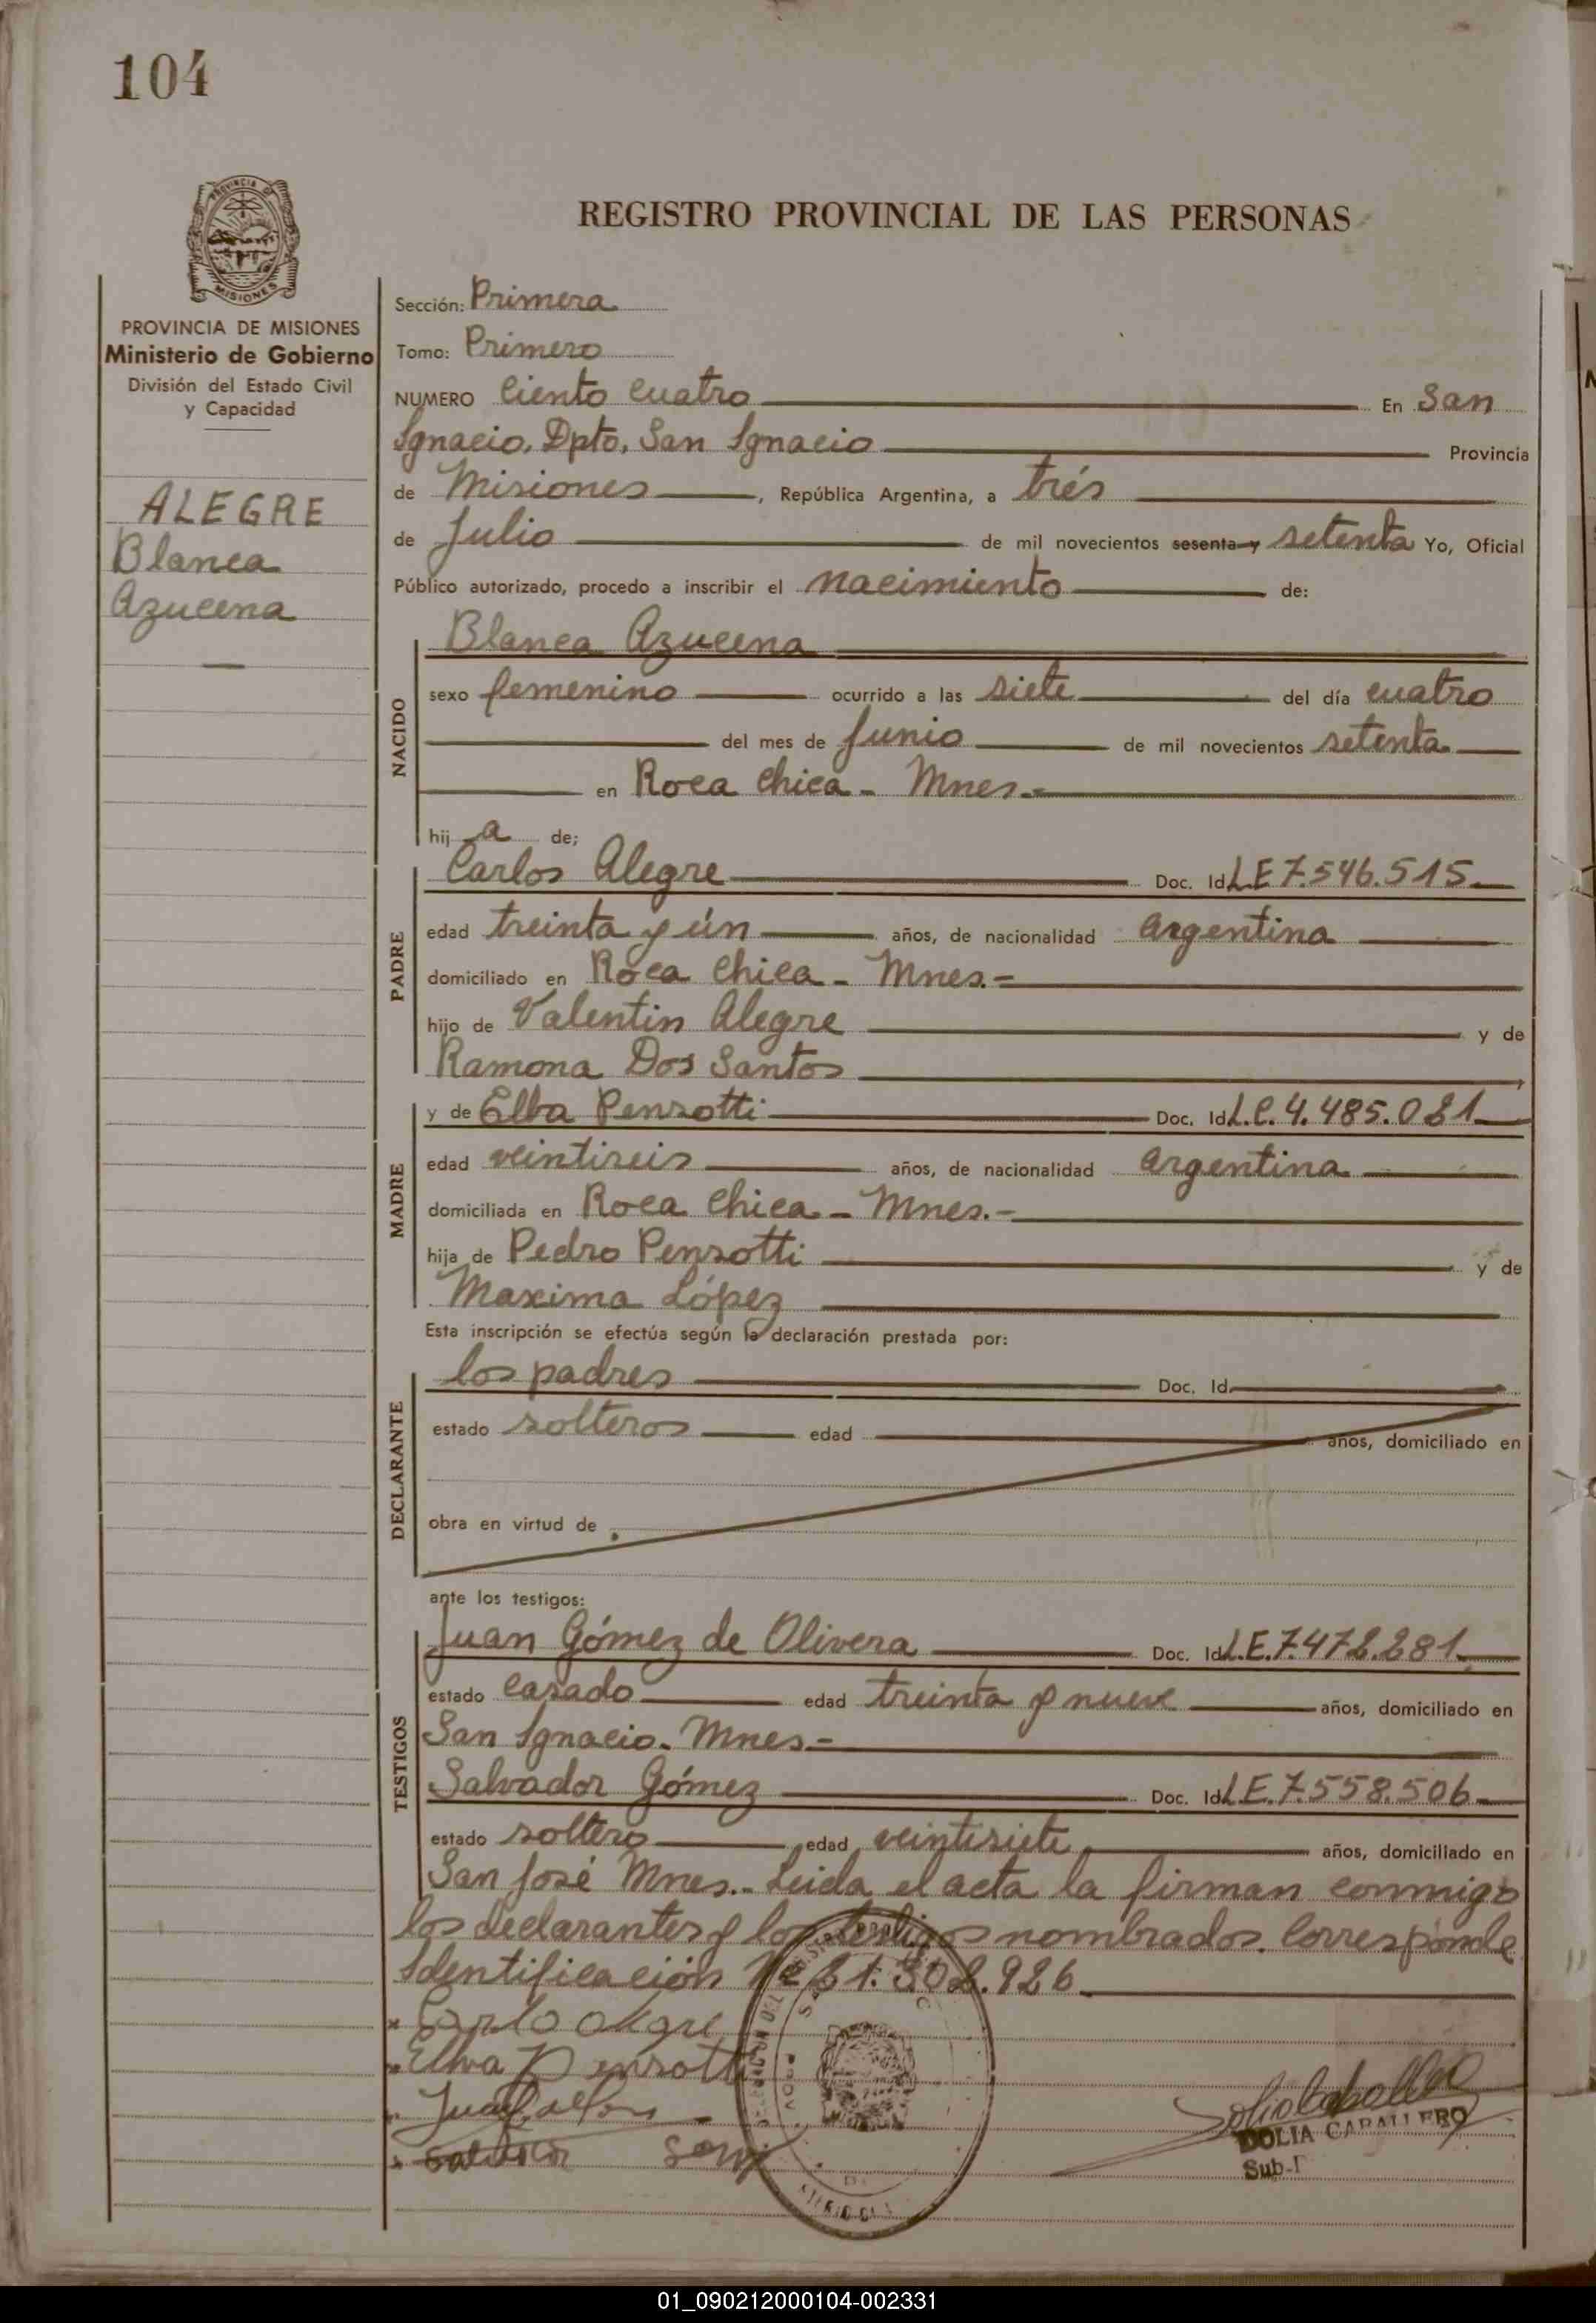 104
PROVINCIA DE
MISIONES
REGISTRO PROVINCIAL DE LAS PERSONAS
PROVINCIA DE MISIONES
Ministerio de Gobierno
División del Estado Civil
y Capacidad
ALEGRE
Blanca
Azucena
Sección: Primera
Tomo: Primero
NUMERO Ciento Cuatro En San
Ignacio, Dpto, San Ignacio Provincia
de Misiones, República Argentina, a trés
de Julio de mil novecientos sesenta y setenta Yo, Oficial
Público autorizado, procedo a inscribir el nacimiento de:
NACIDO
Blanca Azucena
sexo femenino ocurrido a las siete del día cuatro
del mes de Junio de mil novecientos setenta
en Roca Chica - Mnes.-
hij a de;
PADRE
Carlos Alegre Doc. Id L.E 7.546.515
edad treinta y ún años, de nacionalidad argentina
domiciliado en Roca Chica - Mnes.-
hijo de Valentin Alegre y de
Ramona Dos Santos
MADRE
y de Elba Penzotti Doc. Id L.C. 4.485.081
edad veintiseis años, de nacionalidad argentina
domiciliada en Roca Chica - Mnes.-
hija de Pedro Penzotti y de
Maxima López
Esta inscripción se efectúa según la declaración prestada por:
DECLARANTE
los padres Doc. Id.
estado solteros edad años, domiciliado en
obra en virtud de
ante los testigos:
TESTIGOS
Juan Gómez de Olivera Doc. Id L.E. 7.472.281
estado casado edad treinta y nueve años, domiciliado en
San Ignacio. Mnes.-
Salvador Gómez Doc. Id L.E. 7.558.506
estado soltero edad veintisiete años, domiciliado en
San José Mnes.- Leida el acta la firman conmigo
los declarantes y los testigos nombrados. Corresponde
Identificación Nº 21.302.926
Elva Penzotti
DOLIA CABALLERO
Sub-
01_090212000104-002331